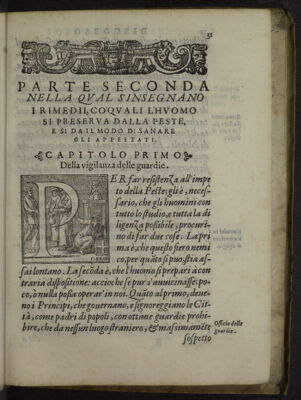 31
PARTE SECONDA
NELLA QVAL S'INSEGNANO
I RIMEDII, CO' QVALI L'HVOMO
SI PRESERVA DALLA PESTE,
E SI DA IL MODO DI SANARE
GLI APPESTATI.
CAPITOLO PRIMO
Della vigilanza delle guardie.
PER far resistenza all'impe
to della Peste: gli è, neces-
sario, che gli huomini con
tutto lo studio, e tutta la di
ligenza possibile, procuri-
no di far due cose. La pri
ma è, che questo fiero nemi
co, per quãto si può, stia as-
sai lontano. La secõda è, che l'huomo si prepari à con
traria dispositione: accioche se pur s'auuicinasse po-
co, ò nulla possa operar' in noi. Quãto al primo, deue-
no i Principi, che gouernano, e signoreggiano le Cit-
tà, come padri di popoli, con ottime guardie prohi-
bire, che da nessun luogo straniero, & massimamẽte
Officio delle
guardie.
sospetto